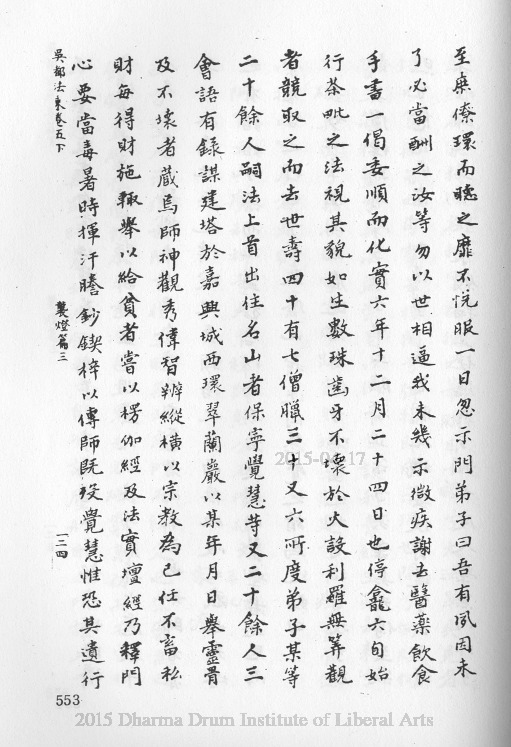 至庶僚環而聽之靡不悅服一日忽示門弟子曰吾有夙因未
了必當酬之汝等勿以世相逼我未幾示微疾謝去醫藥飲食
手書一偈委順而化實六年十二月二十四日也停龕六旬始
行荼毗之法視其貌如生數珠齒牙不壞於火設利羅無筭觀
者競取之而去世壽四十有七僧臘三十又六所度弟子某等
二十餘人嗣法上首出住名山者保寧覺慧等又二十餘人三
會語有錄謀建塔於嘉興城西環翠蘭巖以某年月日舉靈骨
及不壞者藏焉師神觀秀偉智辨縱橫以宗教為己任不畜私
財每得財施輒舉以給貧者嘗以楞伽經及法寶壇經乃釋門
心要當毒暑時揮汗謄鈔鍥梓以傳師既歿覺慧惟恐其遺行
吳都法乘卷五下
襲燈篇三
一二四
553
2015-04-17
2015 Dharma Drum Institute of Liberal Arts